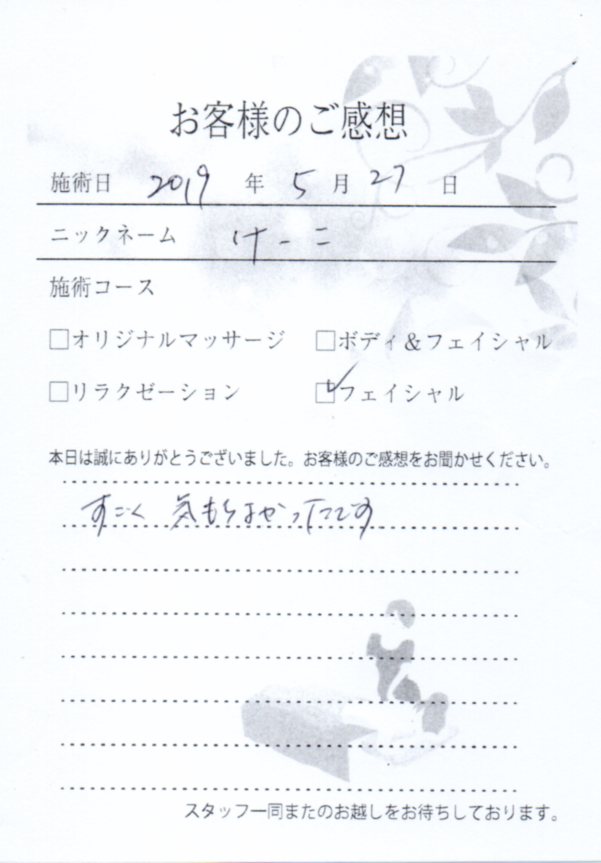 お客様のご感想
施術日 2019 年 5 月 27 日
ニックネーム けーこ
施術コース
□オリジナルマッサージ □ボディ&フェイシャル
□リラクゼーション ☑フェイシャル
本日は誠にありがとうございました。お客様のご感想をお聞かせください。
すごく 気もちよかったです
スタッフ一同またのお越しをお待ちしております。